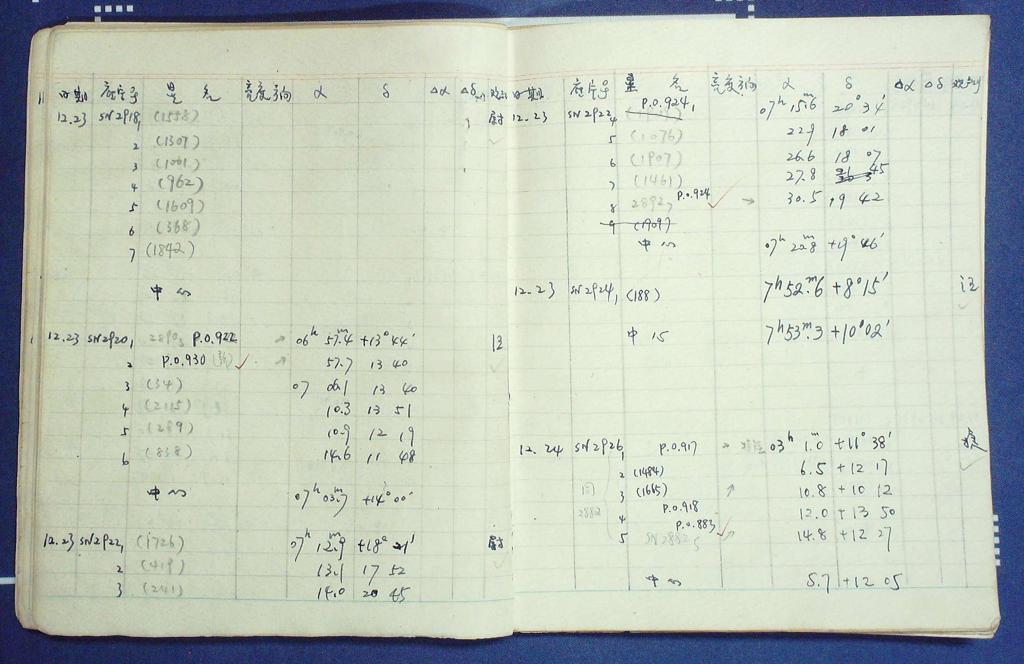 日期 底片号 星名 亮度 方向 α δ Δα Δδ
12.23 SN2918, 1 (1558) 尉
2 (1307)
3 (1061)
4 (962)
5 (1609)
6 (368)
7 (1842)
中心
12.23 SN2920, 1 P.O.922 06h 57.4m +13°44′ 汪
2 P.O.930 57.7 13 40
3 (34) 07 06.1 13 40
4 (2115) 10.3 13 51
5 (289) 10.9 12 19
6 (838) 14.6 11 48
中心 07h 03.7m +14°00′
12.23 SN2922, 1 (1726) 07h 12.9m +18° 21′ 尉
2 (419) 13.1 17 52
3 (241) 14.0 20 45
日期 底片号 星名 亮度 方向 α δ Δα Δδ 观测
12.23 SN2922, 4 P.O.924, 07h 15.6m 20°34′
5 (1076) 22.9 18 01
6 (1907) 26.6 18 07
7 (1461) 27.8 45
8 2892, P.O.924 30.5 19 42
9 (1909)
中心 07h 22.8m +19°46′
12.23 SN2924, 1 (188) 7h52.m6 +8°15′ 汪
中心 7h53.m3 +10°02′
12.24 SN2926, 1 P.O.917 03h 1.0m +11°38′
2 (1484) 6.5 +12 17
同 3 (1665) 10.8 +10 12
2882 4 P.O.918 12.0 +13 50
5 SN2882, 5 P.O.883 14.8 +12 27
中心 5.7 +12 05